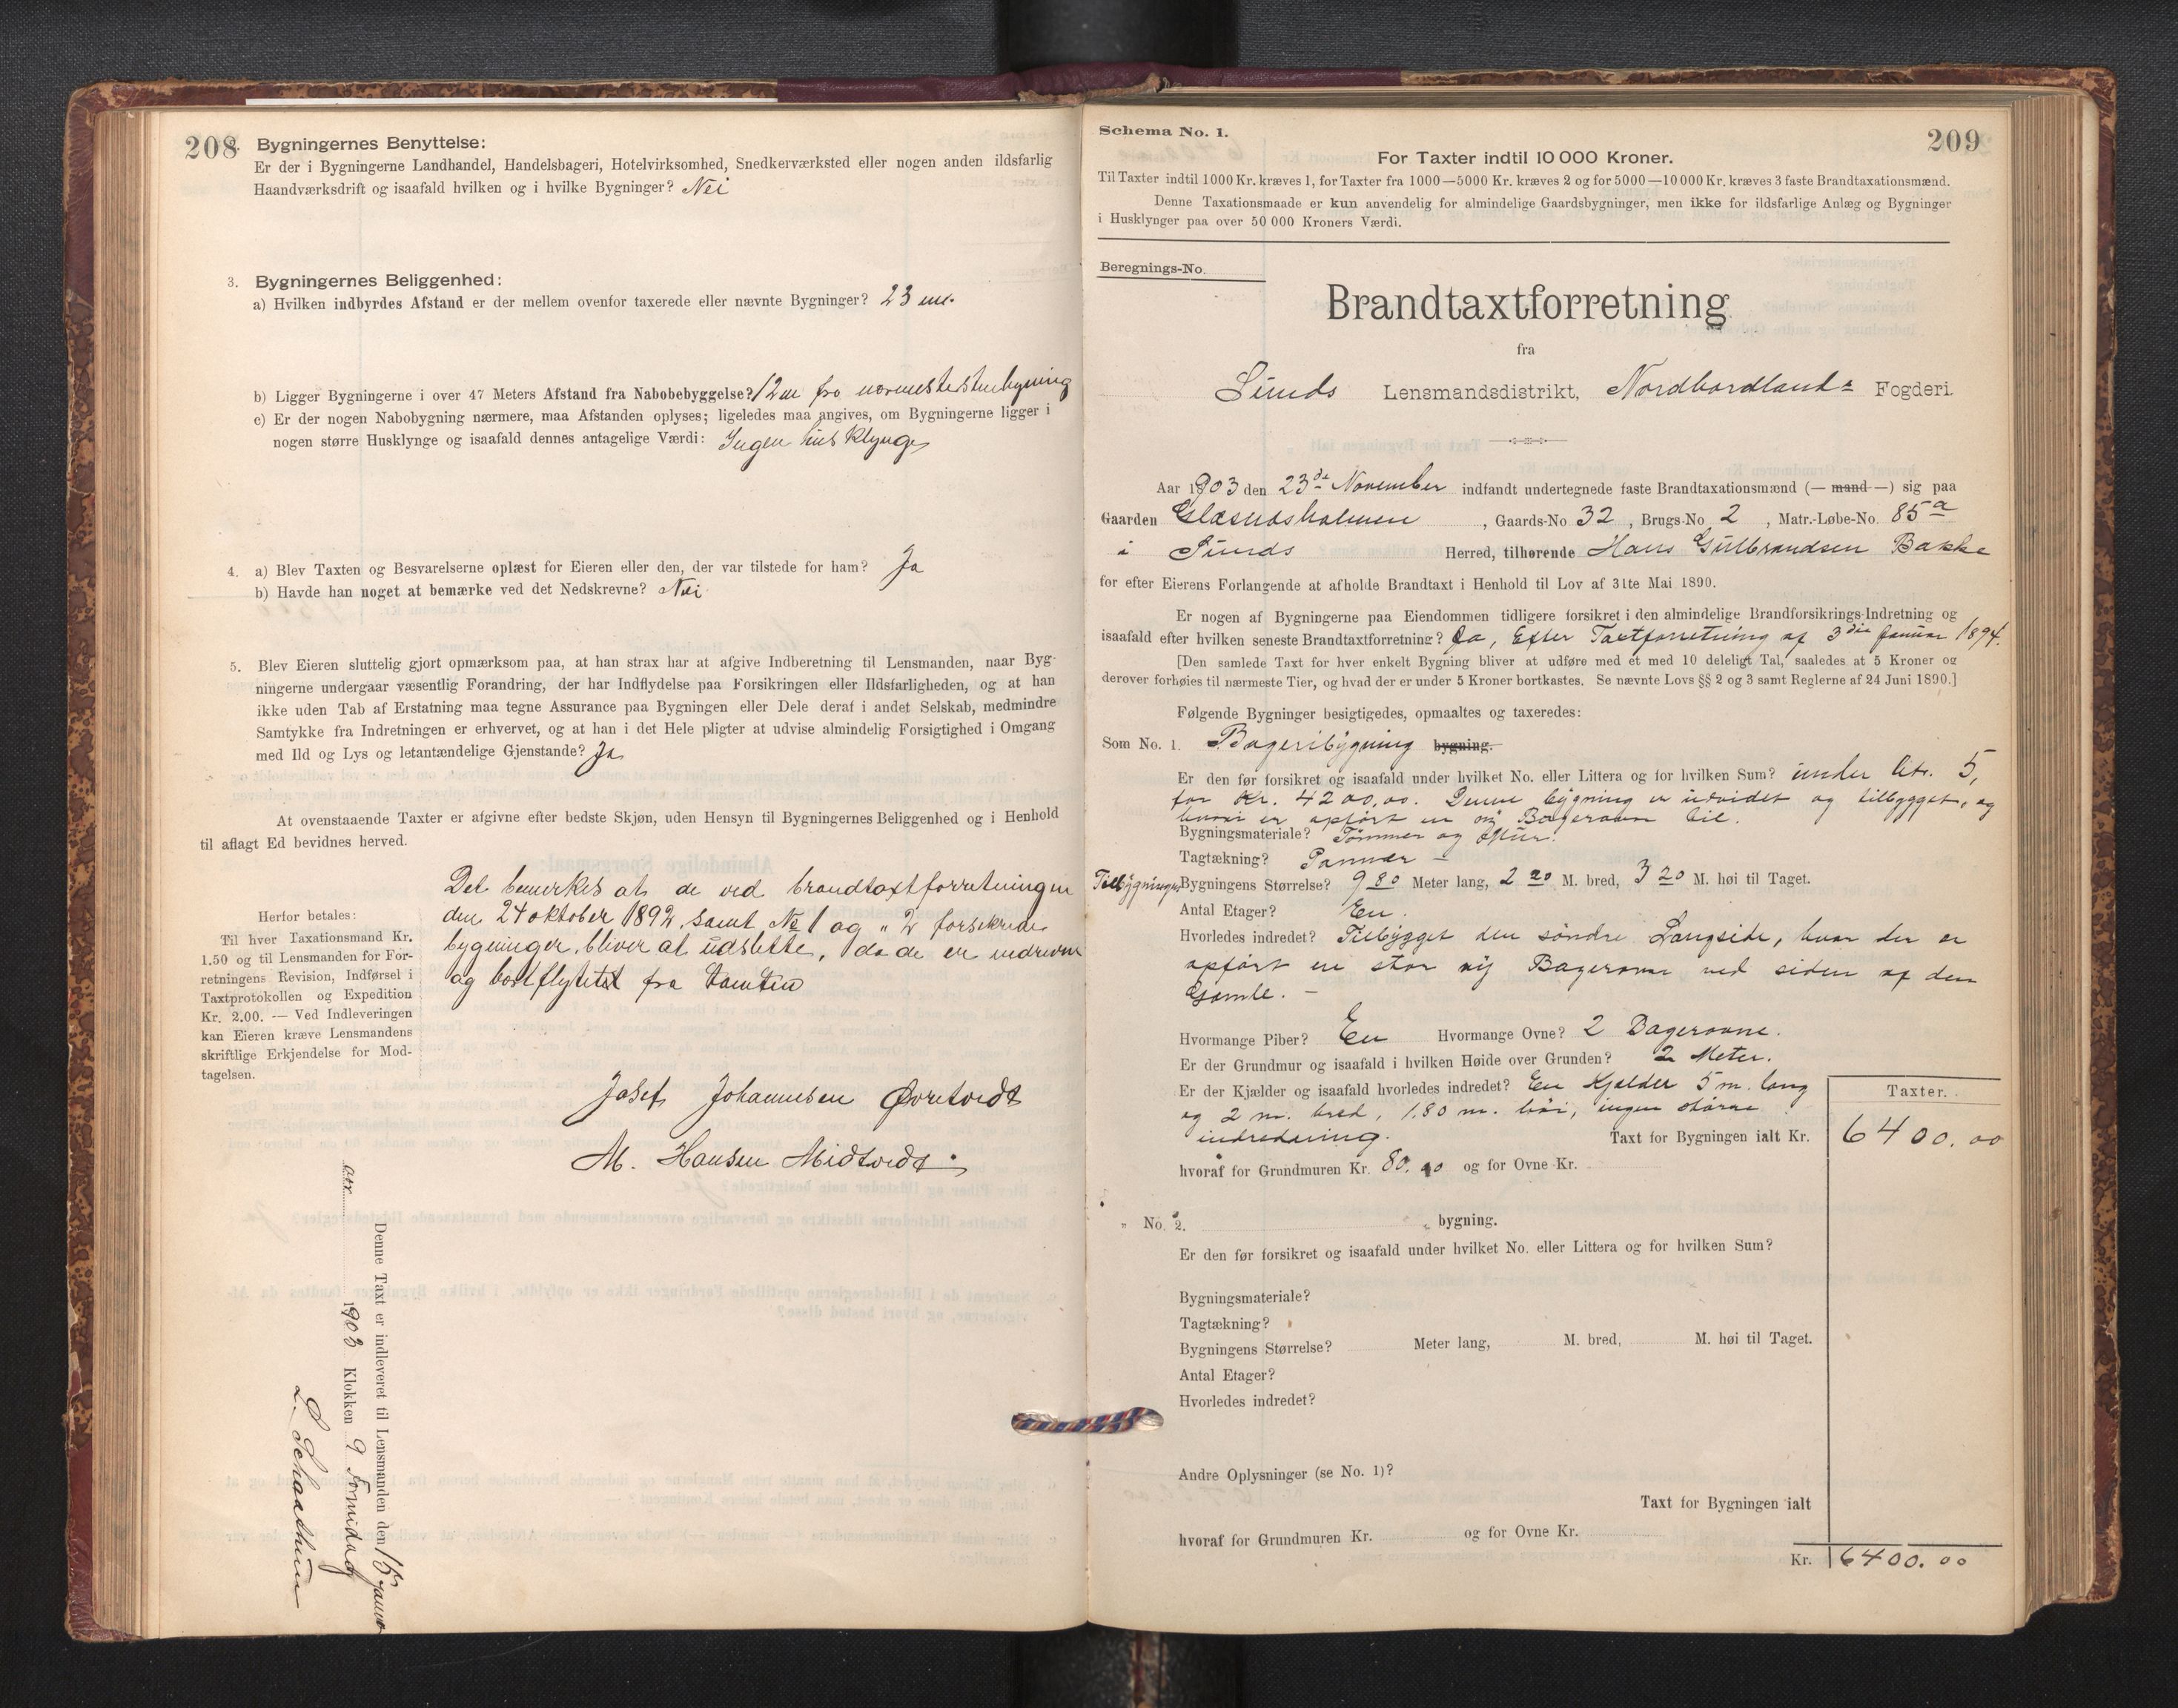 208
Bygningernes Benyttelse:
Er der i Bygningerne Landhandel, Handelsbageri, Hotelvirksomhed, Snedkerværksted eller nogen anden ildsfarlig
Haandværksdrift og isaafald hvilken og i hvilke Bygninger? Nei
3. Bygningernes Beliggenhed:
a) Hvilken indbyrdes Afstand er der mellem ovenfor taxerede eller nævnte Bygninger? 23 m.
b) Ligger Bygningerne i over 47 Meters Afstand fra Nabobebyggelse? 12 m fra nærmeste
c) Er der nogen Nabobygning nærmere, maa Afstanden oplyses; ligeledes maa angives, om Bygningerne ligger i
nogen større Husklynge og isaafald dennes antagelige Værdi: Ingen husklynge
4. a) Blev Taxten og Besvarelserne oplæst for Eieren eller den, der var tilstede for ham? Ja
b) Havde han noget at bemærke ved det Nedskrevne? Nei
5. Blev Eieren sluttelig gjort opmærksom paa, at han strax har at afgive Indberetning til Lensmanden, naar Byg-
ningerne undergaar væsentlig Forandring, der har Indflydelse paa Forsikringen eller Ildsfarligheden, og at han
ikke uden Tab af Erstatning maa tegne Assurance paa Bygningen eller Dele deraf i andet Selskab, medmindre
Samtykke fra Indretningen er erhvervet, og at han i det Hele pligter at udvise almindelig Forsigtighed i Omgang
med Ild og Lys og letantændelige Gjenstande? Ja
At ovenstaaende Taxter er afgivne efter bedste Skjøn, uden Hensyn til Bygningernes Beliggenhed og i Henhold
til aflagt Ed bevidnes herved.
Det bemerkes at de ved brandtaxtforretningen
den 24 oktober 1892, samt No 1 og " 2 forsikrede
bygninger, bliver at udslette, da de er nedrevne
og bortflyttet fra tomten
Herfor betales:
Til hver Taxationsmand Kr.
1.50 og til Lensmanden for For-
retningens Revision, Indførsel i
Taxtprotokollen og Expedition
Kr. 2.00. — Ved Indleveringen
kan Eieren kræve Lensmandens
skriftlige Erkjendelse for Mod-
tagelsen.
Josef Johannesen Øvretvedt
M. Hansen Midtvedt
Denne Taxt er indleveret til Lensmanden den 15 janu
ar 1903 Klokken 9 Formidag
L. Schaathun
Schema No. 1.
209
For Taxter indtil 10 000 Kroner.
Til Taxter indtil 1000 Kr. kræves 1, for Taxter fra 1000—5000 Kr. kræves 2 og for 5000—10 000 Kr. kræves 3 faste Brandtaxationsmænd.
Denne Taxationsmaade er kun anvendelig for almindelige Gaardsbygninger, men ikke for ildsfarlige Anlæg og Bygninger
i Husklynger paa over 50 000 Kroners Værdi.
Beregnings-No.
Brandtaxtforretning
fra
Sunds Lensmandsdistrikt, Nordhordlands Fogderi.
Aar 1903 den 23de November indfandt undertegnede faste Brandtaxationsmænd (— mand —) sig paa
Gaarden Glæsnesholmen, Gaards-No 32, Brugs-No 2, Matr.-Løbe-No. 85a
i Sunds Herred, tilhørende Hans Gulbrandsen Bakke
for efter Eierens Forlangende at afholde Brandtaxt i Henhold til Lov af 31te Mai 1890.
Er nogen af Bygningerne paa Eiendommen tidligere forsikret i den almindelige Brandforsikrings-Indretning og
isaafald efter hvilken seneste Brandtaxtforretning? Ja, Efter Taxtforretning af 3die Januar 1894.
[Den samlede Taxt for hver enkelt Bygning bliver at udføre med et med 10 deleligt Tal, saaledes at 5 Kroner og
derover forhøies til nærmeste Tier, og hvad der er under 5 Kroner bortkastes. Se nævnte Lovs §§ 2 og 3 samt Reglerne af 24 Juni 1890.]
Følgende Bygninger besigtigedes, opmaaltes og taxeredes:
Som No. 1. Bageribygning bygning.
Er den før forsikret og isaafald under hvilket No. eller Littera og for hvilken Sum? under litr. 5,
for Kr. 4200,00. Denne bygning er udvidet og tilbygget, og
hvori er opført en ny Bagerovn til.
Bygningsmateriale? Tømmer og Mur.
Tagtækning? Panner —
Tilbygningen Bygningens Størrelse? 9 80 Meter lang, 2 20 M. bred, 3 20 M. høi til Taget.
Antal Etager? En.
Hvorledes indredet? Tilbygget den søndre Langside, hvor der er
opført en stor ny Bagerovn ved siden af den
Gamle. —
Hvormange Piber? En Hvormange Ovne? 2 Bagerovne.
Er der Grundmur og isaafald i hvilken Høide over Grunden? 2 Meter.
Er der Kjælder og isaafald hvorledes indredet? En Kjælder 5 m. lang
og 2 m. bred, 1,80 m. høi, ingen større
indredning.
Taxter.
Taxt for Bygningen ialt Kr. 6400.00
hvoraf for Grundmuren Kr. 80.00 og for Ovne Kr.
" No. 2. bygning.
Er den før forsikret og isaafald under hvilket No. eller Littera og for hvilken Sum?
Bygningsmateriale?
Tagtækning?
Bygningens Størrelse? Meter lang, M. bred, M. høi til Taget.
Antal Etager?
Hvorledes indredet?
Andre Oplysninger (se No. 1)?
Taxt for Bygningen ialt
hvoraf for Grundmuren Kr. og for Ovne Kr.
Kr. 6400.00